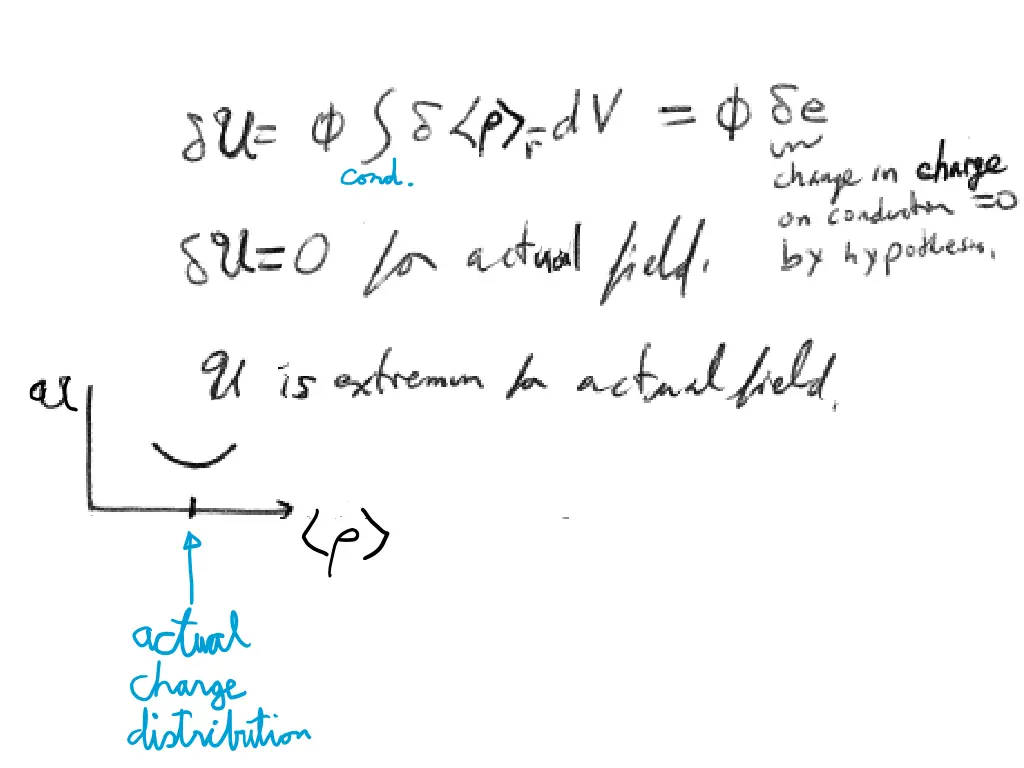 δU = ϕ ∫ δ⟨ρ⟩r̄ dV = ϕ δe
cond.
change in charge
on conductor =0
by hypothesis.
δU=0 for actual field.
U is extremum for actual field.
U
⟨ρ⟩
actual
charge
distribution